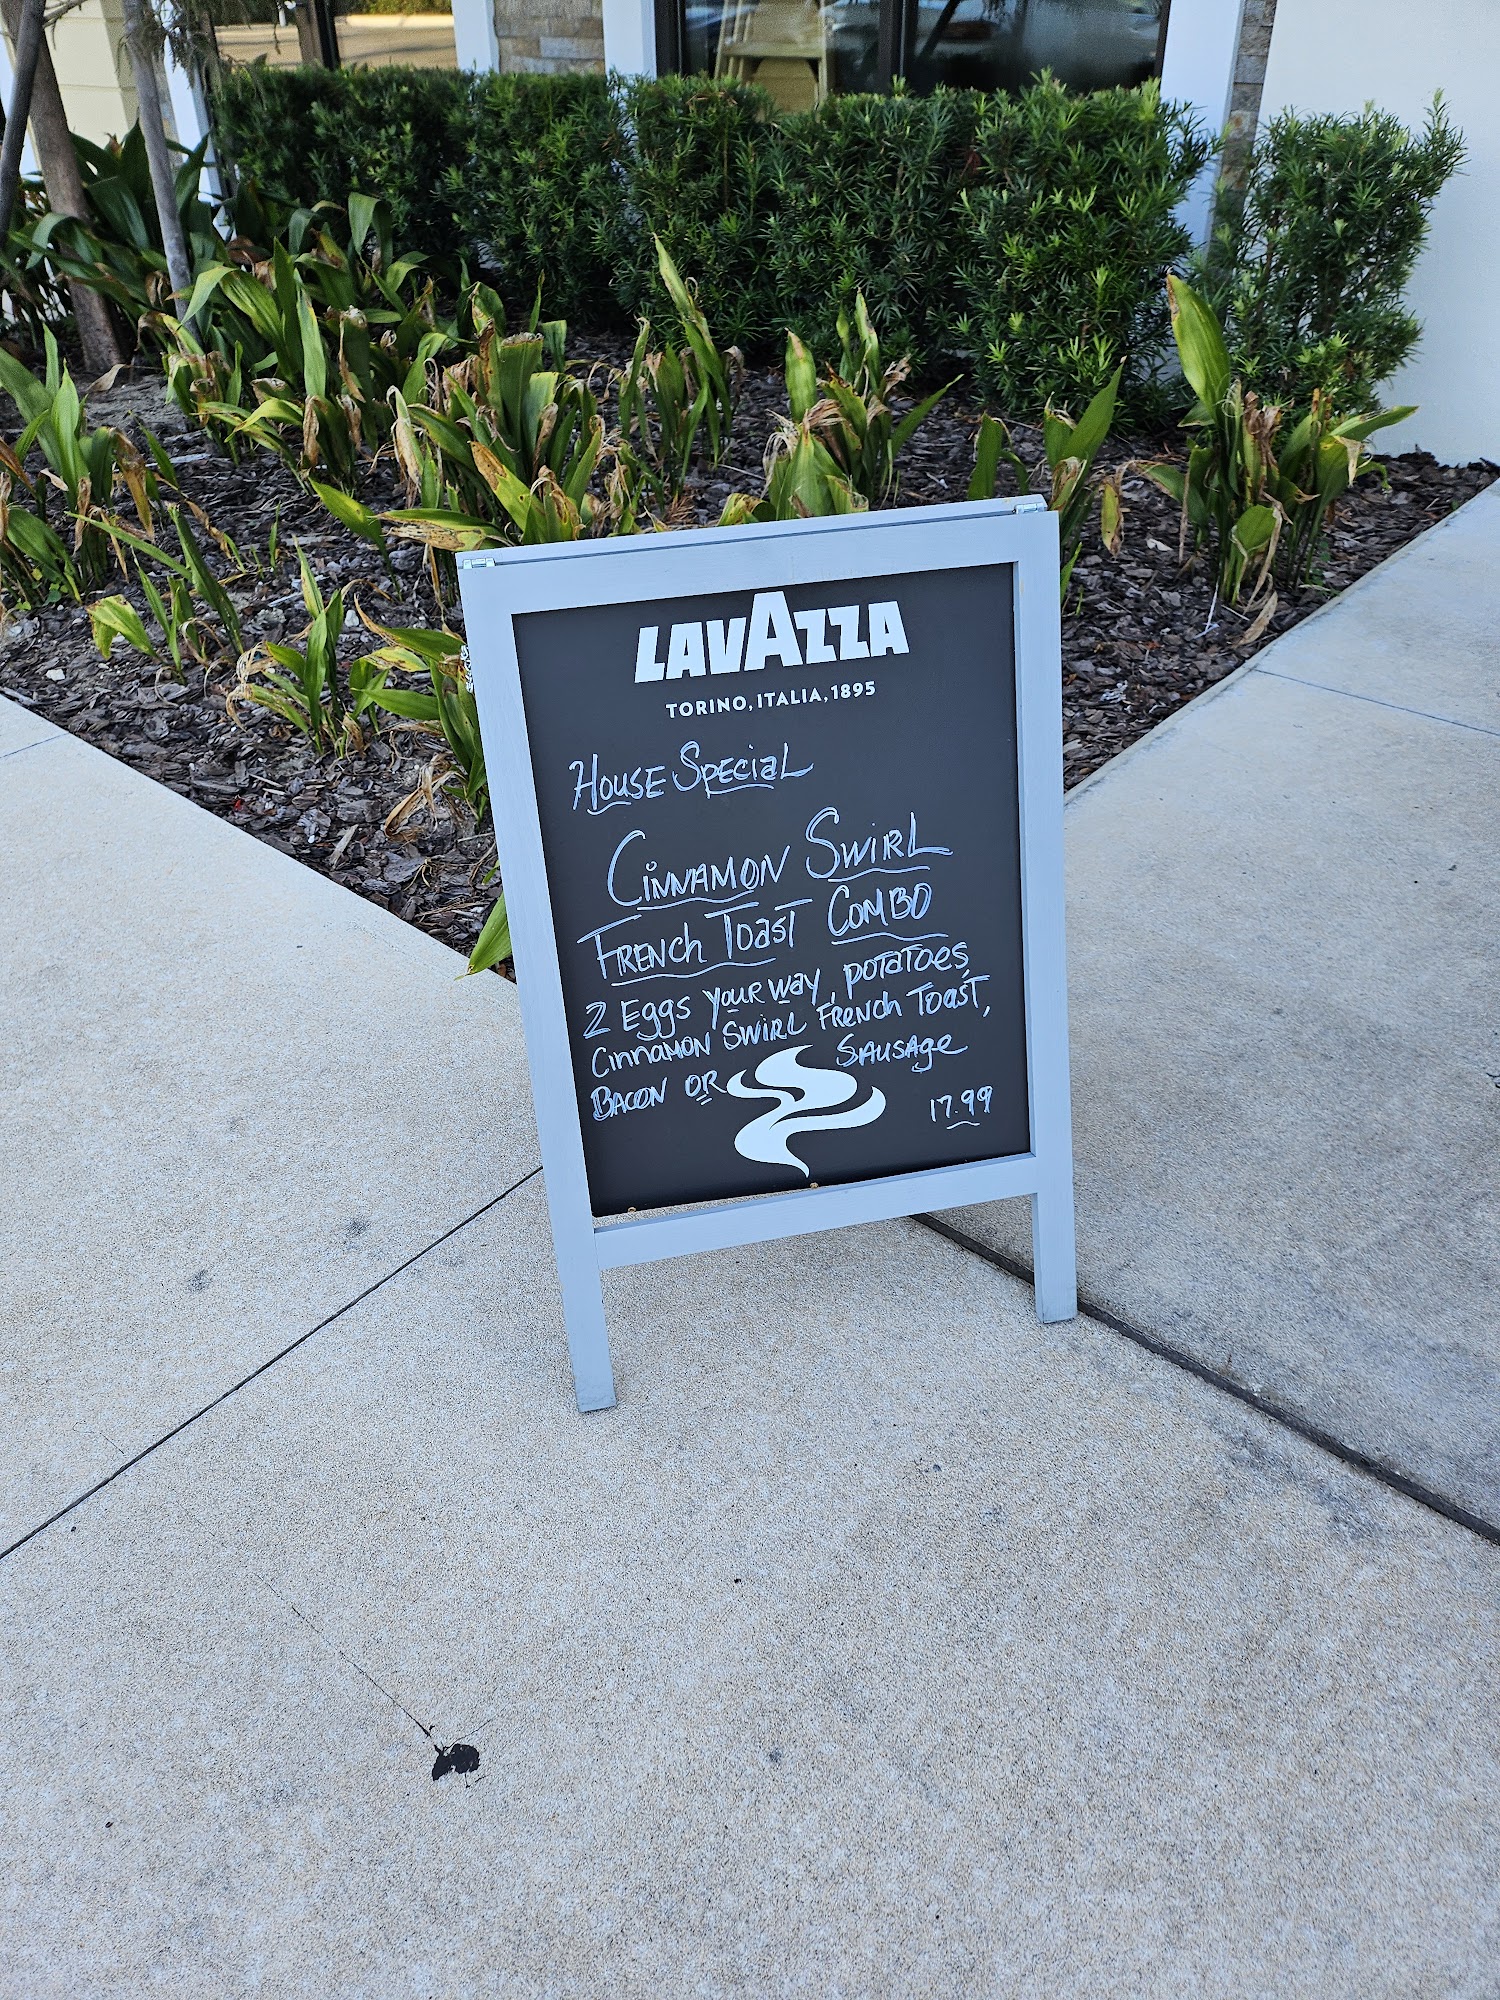 LAVAZZA
TORINO, ITALIA, 1895
House Special
Cinnamon Swirl
French Toast Combo
2 Eggs your way, potatoes,
Cinnamon Swirl French Toast,
Bacon or Sausage
17.99